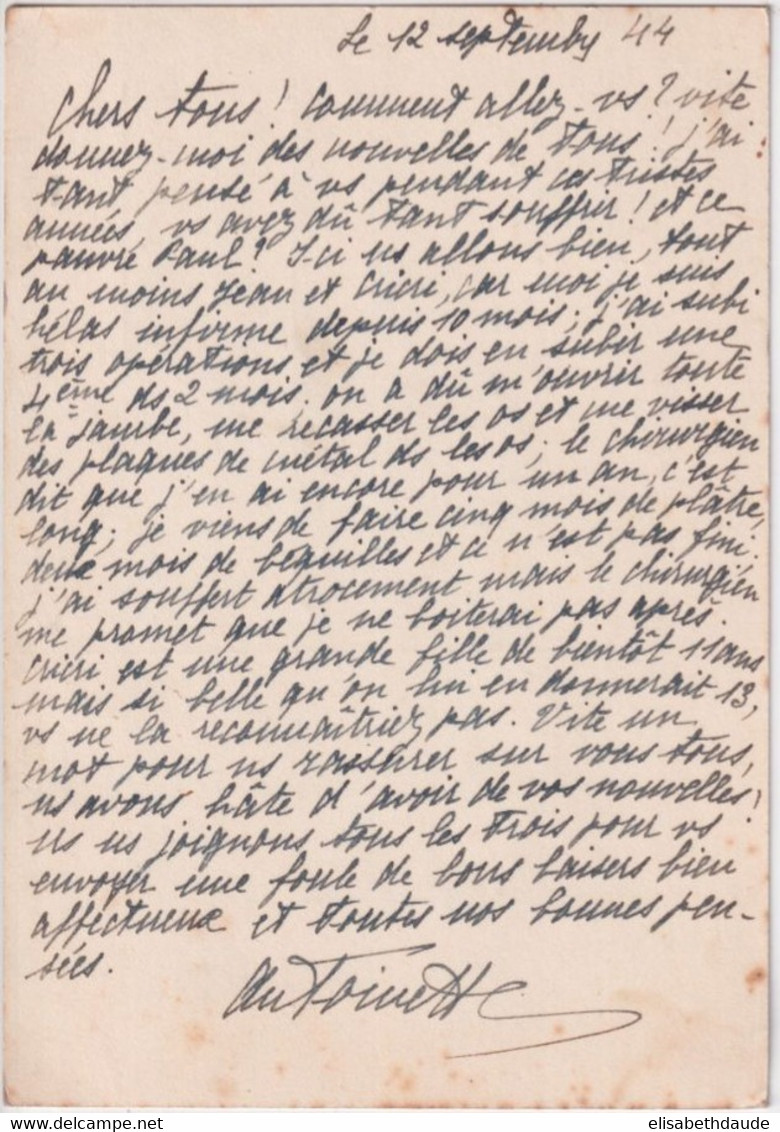 Le 12 septembre 44
Chers tous! Comment allez-vs? vite
donnez-moi des nouvelles de tous! j'ai
tant pensé à vs pendant ces tristes
années, vs avez dû tant souffrir! et ce
pauvre Paul? Ici ns allons bien, tout
au moins Jean et Cricri, car moi je suis
hélas infirme depuis 10 mois; j'ai subi
trois opérations et je dois en subir une
4ème ds 2 mois. on a dû m'ouvrir toute
la jambe, me recasser les os et me visser
des plaques de métal ds les os; le chirurgien
dit que j'en ai encore pour un an, c'est
long; je viens de faire cinq mois de plâtre,
deux mois de béquilles et ce n'est pas fini.
j'ai souffert atrocement mais le chirurgien
me promet que je ne boiterai pas après.
Cricri est une grande fille de bientôt 11 ans
mais si belle qu'on lui en donnerait 13,
vs ne la reconnaîtriez pas. Vite un
mot pour ns rassurer sur vous tous,
ns avons hâte d'avoir de vos nouvelles!
Ns ns joignons tous les trois pour vs
envoyer une foule de bons baisers bien
affectueux et toutes nos bonnes pen-
sées.
Antoinette
elisabethdaude